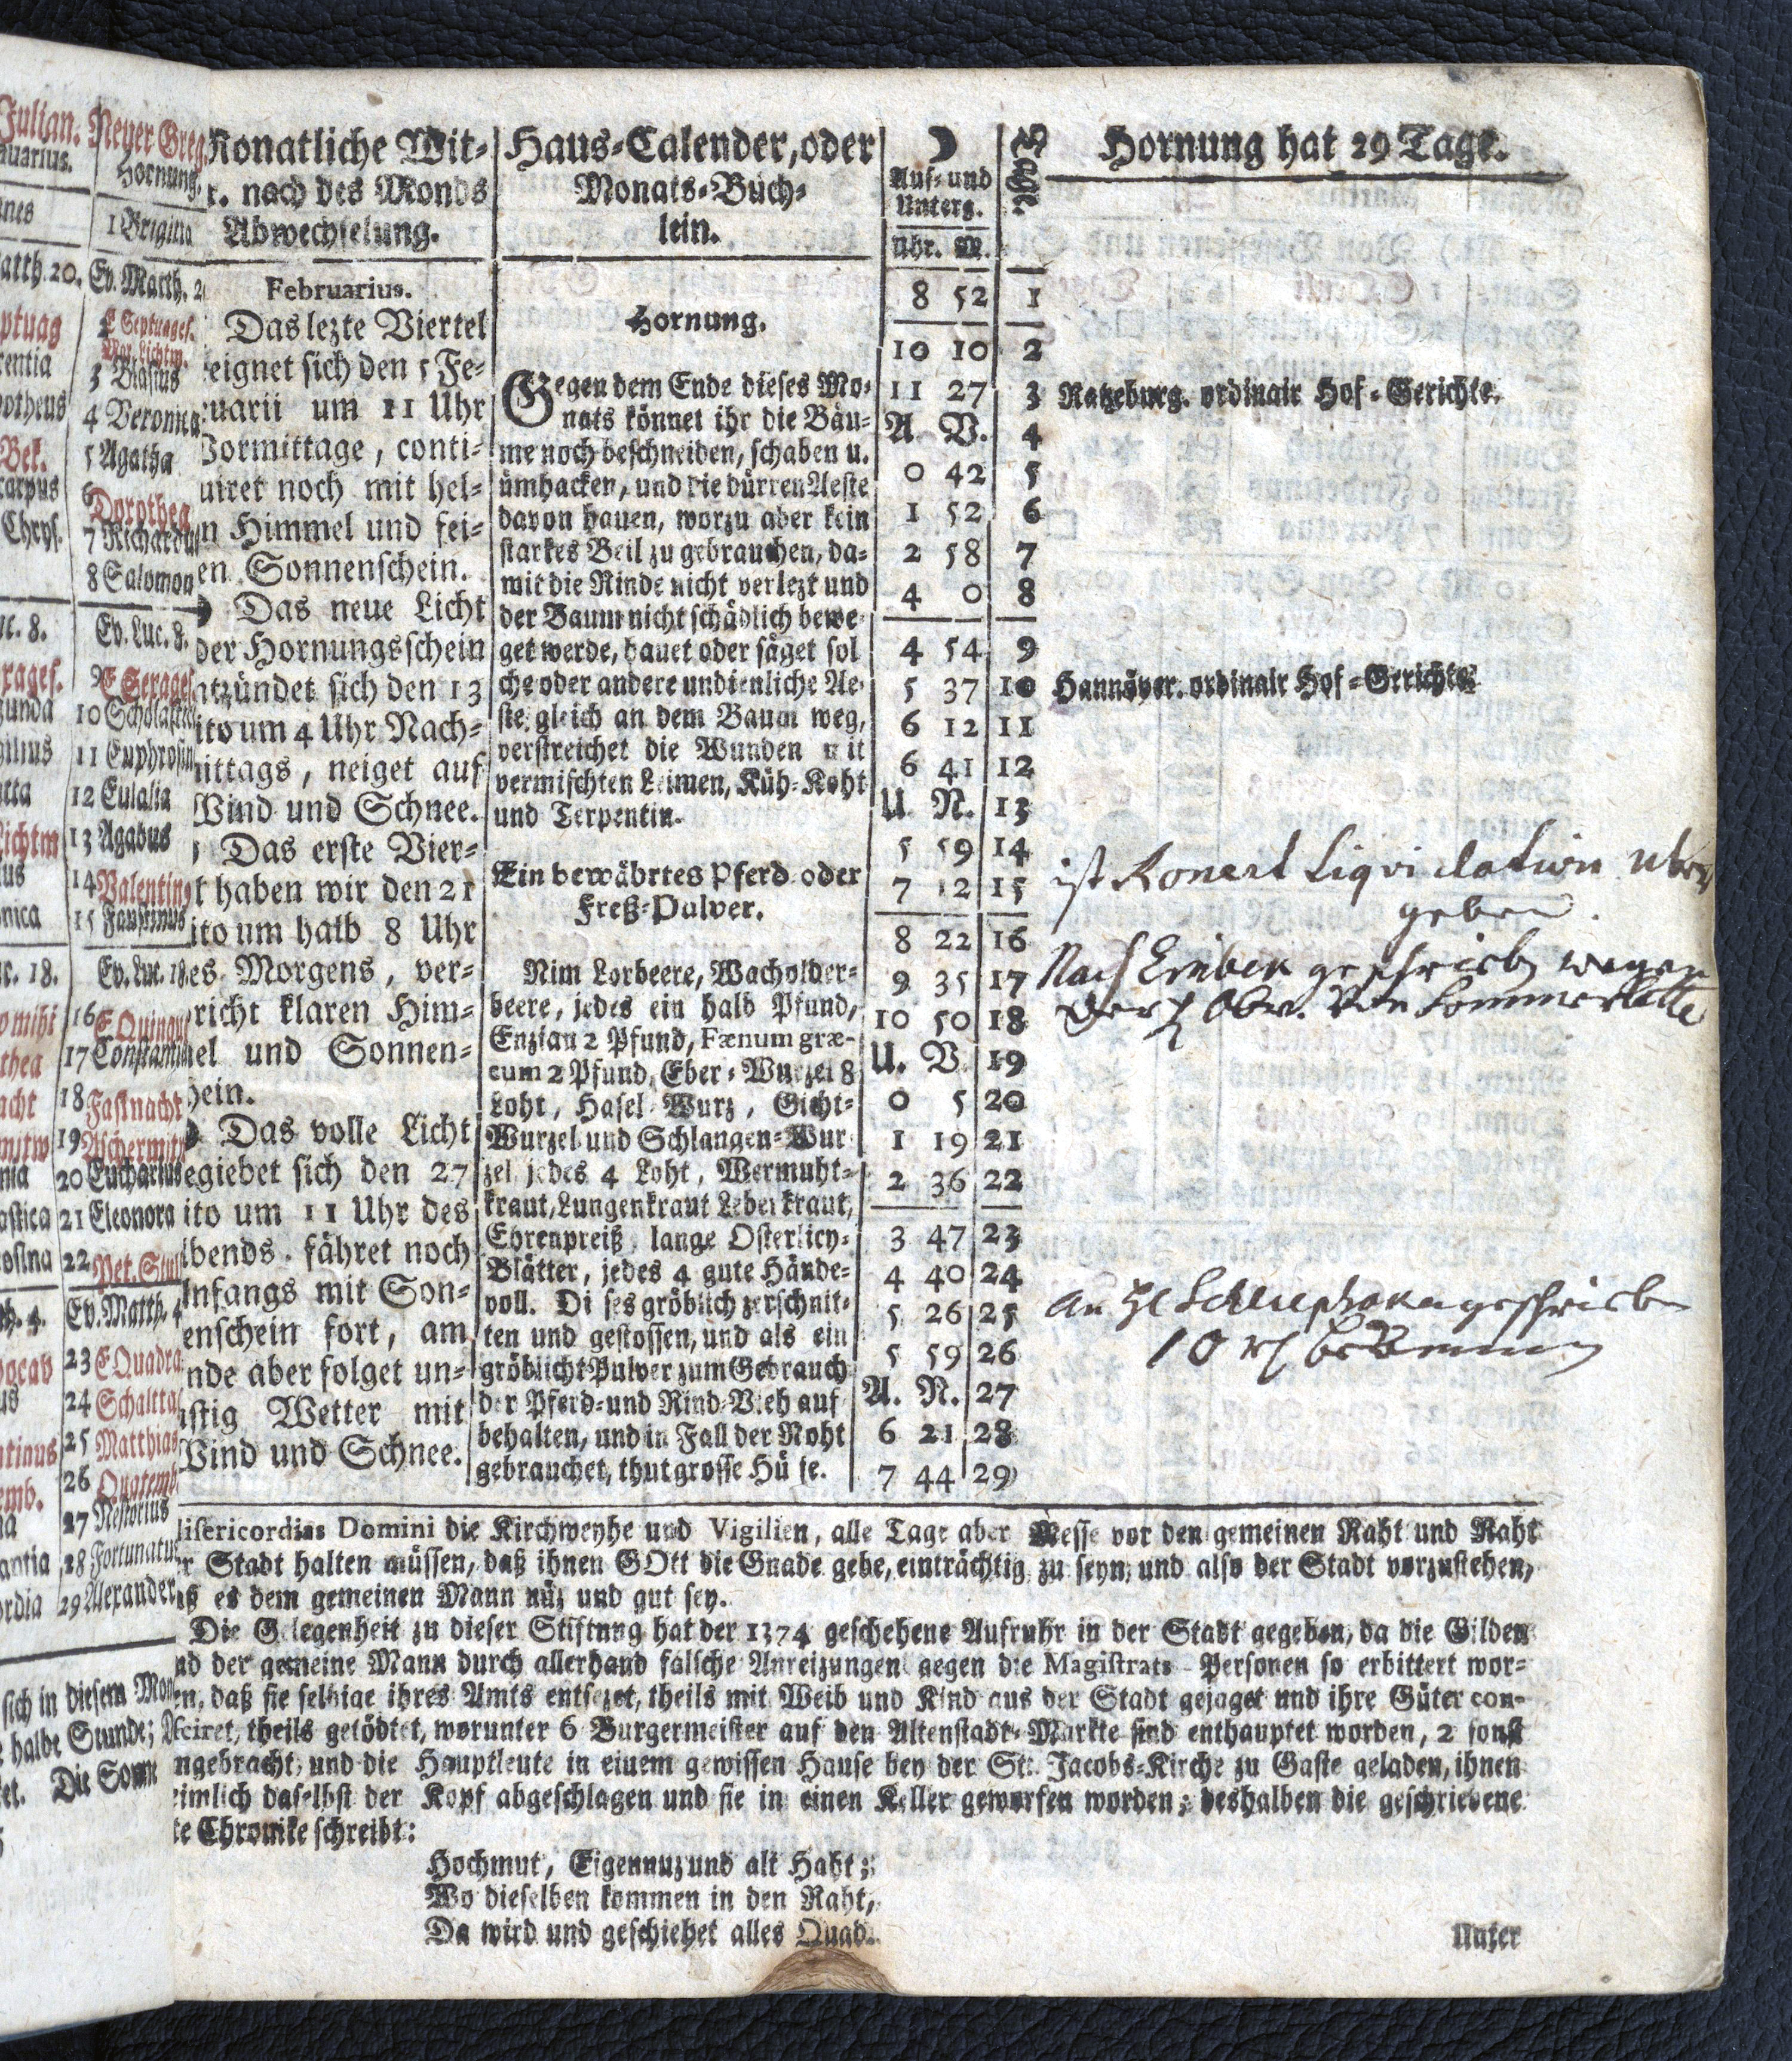 Julian.
Neuer Greg.
Hornung.
1 Brigitta
Matth. 20.
Ev. Matth. 2
E Septuages.
Mar. Lichtm.
3 Blasius
4 Veronica
5 Agatha
6 Dorothea
7 Richardus
8 Salomon
Ev. Luc. 8.
9 E Sexages.
10 Scholastica
11 Euphrosin
12 Eulalia
13 Agabus
14 Valentin
15 Faustinus
Ev. Luc. 18.
16 E Quinqu
17 Constantin
18 Fastnacht
19 Aschermitw
20 Eucharius
21 Eleonora
22 Pet. Stul
Ev. Matth. 4
23 E Quadra
24 Schaltta
25 Matthias
26 Quatemb.
27 Nestorius
28 Fortunatus
29 Alexander
sich in diesem Mon
halbe Stunde;
Die Sonn
Monatliche Wit-
r. nach des Monds
Abwechselung.
Februarius.
Das lezte Viertel
eignet sich den 5 Fe-
ruarii um 11 Uhr
Vormittage, conti-
nuiret noch mit hel-
en Himmel und fei-
en Sonnenschein.
Das neue Licht
der Hornungsschein
ntzündet sich den 13
ito um 4 Uhr Nach-
mittags, neiget auf
Wind und Schnee.
Das erste Vier-
t haben wir den 21
ito um halb 8 Uhr
es Morgens, ver-
richt klaren Him-
mel und Sonnen-
hein.
Das volle Licht
egiebet sich den 27
ito um 11 Uhr des
Abends. fähret noch
Anfangs mit Son-
enschein fort, am
nde aber folget un-
stig Wetter mit
Wind und Schnee.
Haus-Calender, oder
Monats-Büch-
lein.
Hornung.
Gegen dem Ende dieses Mo-
nats könnet ihr die Bäu-
me noch beschneiden, schaben u.
ümhacken, und die dürren Aeste
davon hauen, worzu aber kein
starkes Beil zu gebrauchen, da-
mit die Rinde nicht verlezt und
der Baum nicht schädlich bewe-
get werde, hauet oder säget sol
che oder andere undienliche Ae-
ste gleich an dem Baum weg,
verstreichet die Wunden mit
vermischten Leimen, Küh-Koht
und Terpentin.
Ein bewährtes Pferd oder
Freß-Pulver.
Nim Lorbeere, Wacholder-
beere, jedes ein halb Pfund,
Enzian 2 Pfund, Fænum græ-
cum 2 Pfund, Eber-Wurzel 8
Loht, Hasel-Wurz, Gicht-
Wurzel und Schlangen-Wur
zel jedes 4 Loht, Wermuht-
kraut, Lungenkraut Leberkraut,
Ehrenpreiß, lange Osterlicy-
Blätter, jedes 4 gute Hände-
voll. Dises gröblich zerschnit-
ten und gestossen, und als ein
gröblicht Pulver zum Gebrauch
der Pferd- und Rind-Vieh auf
behalten, und in Fall der Noht
gebrauchet, thut grosse Hülfe.
Auf- und
Unterg.
Uhr. M.
8 52 1
10 10 2
11 27 3
A. V. 4
0 42 5
1 52 6
2 58 7
4 0 8
4 54 9
5 37 10
6 12 11
6 41 12
U. N. 13
5 59 14
7 12 15
8 22 16
9 35 17
10 50 18
U. V. 19
0 5 20
1 19 21
2 36 22
3 47 23
4 40 24
5 26 25
5 59 26
A. N. 27
6 21 28
7 44 29
Hornung hat 29 Tage.
Ratzeburg. ordinair Hof-Gerichte.
Hannöver. ordinair Hof-Gerichte
ist Liqvidation uber
geben.
Nach Einbek geschrieben wegen
der Obr. von
geschrieben
10
Misericordias Domini die Kirchweyhe und Vigilien, alle Tage aber Messe vor den gemeinen Raht und Raht
er Stadt halten müssen, daß ihnen GOtt die Gnade gebe, einträchtig zu seyn, und also der Stadt vorzustehen,
aß es dem gemeinen Mann nüz und gut sey.
Die Gelegenheit zu dieser Stiftung hat der 1374 geschehene Aufruhr in der Stadt gegeben, da die Gilden
nd der gemeine Mann durch allerhand falsche Anreizungen gegen die Magistrats-Personen so erbittert wor-
en, daß sie selbige ihres Amts entsezet, theils mit Weib und Kind aus der Stadt gejaget und ihre Güter con-
fisciret, theils getödtet, worunter 6 Burgermeister auf den Altenstadt-Markte sind enthauptet worden, 2 sonst
mgebracht, und die Hauptleute in einem gewissen Hause bey der St. Jacobs-Kirche zu Gaste geladen, ihnen
eimlich daselbst der Kopf abgeschlagen und sie in einen Keller geworfen worden; deshalben die geschriebene
te Chronike schreibt:
Hochmut, Eigennuz und alt Haht;
Wo dieselben kommen in den Raht,
Da wird und geschiehet alles Quad.
Unter